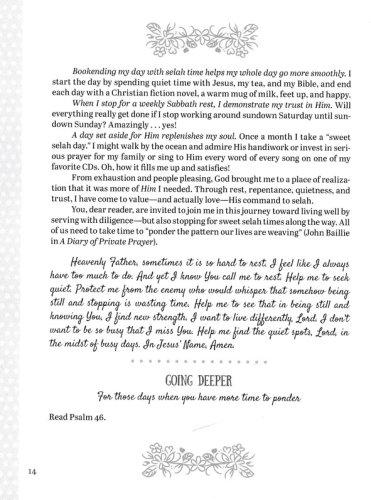 Bookending my day with selah time helps my whole day go more smoothly. I
start the day by spending quiet time with Jesus, my tea, and my Bible, and end
each day with a Christian fiction novel, a warm mug of milk, feet up, and happy.
When I stop for a weekly Sabbath rest, I demonstrate my trust in Him. Will
everything really get done if I stop working around sundown Saturday until sun-
down Sunday? Amazingly . . . yes!
A day set aside for Him replenishes my soul. Once a month I take a “sweet
selah day.” I might walk by the ocean and admire His handiwork or invest in seri-
ous prayer for my family or sing to Him every word of every song on one of my
favorite CDs. Oh, how it fills me up and satisfies!
From exhaustion and people pleasing, God brought me to a place of realiza-
tion that it was more of Him I needed. Through rest, repentance, quietness, and
trust, I have come to value—and actually love—His command to selah.
You, dear reader, are invited to join me in this journey toward living well by
serving with diligence—but also stopping for sweet selah times along the way. All
of us need to take time to “ponder the pattern our lives are weaving” (John Baillie
in A Diary of Private Prayer).
Heavenly Father, sometimes it is so hard to rest. I feel like I always
have too much to do. And yet I know You call me to rest. Help me to seek
quiet. Protect me from the enemy who would whisper that somehow being
still and stopping is wasting time. Help me to see that in being still and
knowing You, I find new strength. I want to live differently, Lord. I don’t
want to be so busy that I miss You. Help me find the quiet spots, Lord, in
the midst of busy days. In Jesus’ Name, Amen.
GOING DEEPER
For those days when you have more time to ponder
Read Psalm 46.
14